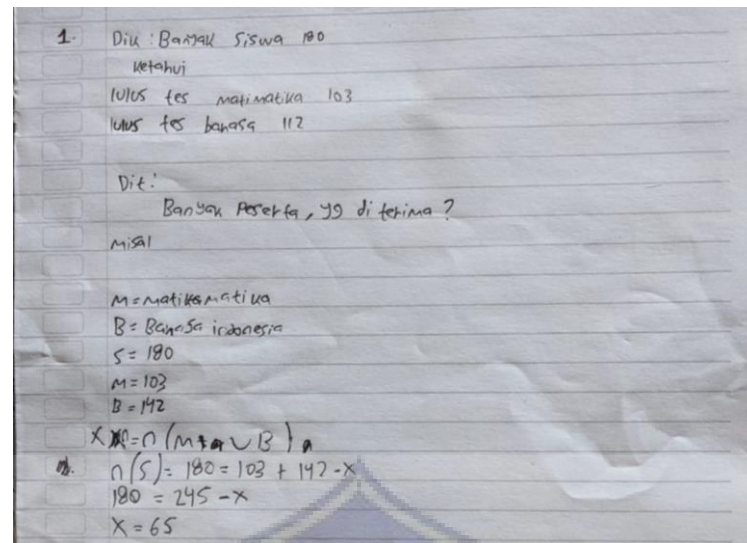 1. Dik : Banyak siswa 180
ketahui
lulus tes matimatika 103
lulus tes bahasa 112
Dit :
Banyak Peserta, yg di terima ?
misal
M = matikamatika
B = Bahasa indonesia
S = 180
M = 103
B = 142
X = n (M ∪ B)
n(S) = 180 = 103 + 142 - x
180 = 245 - x
X = 65